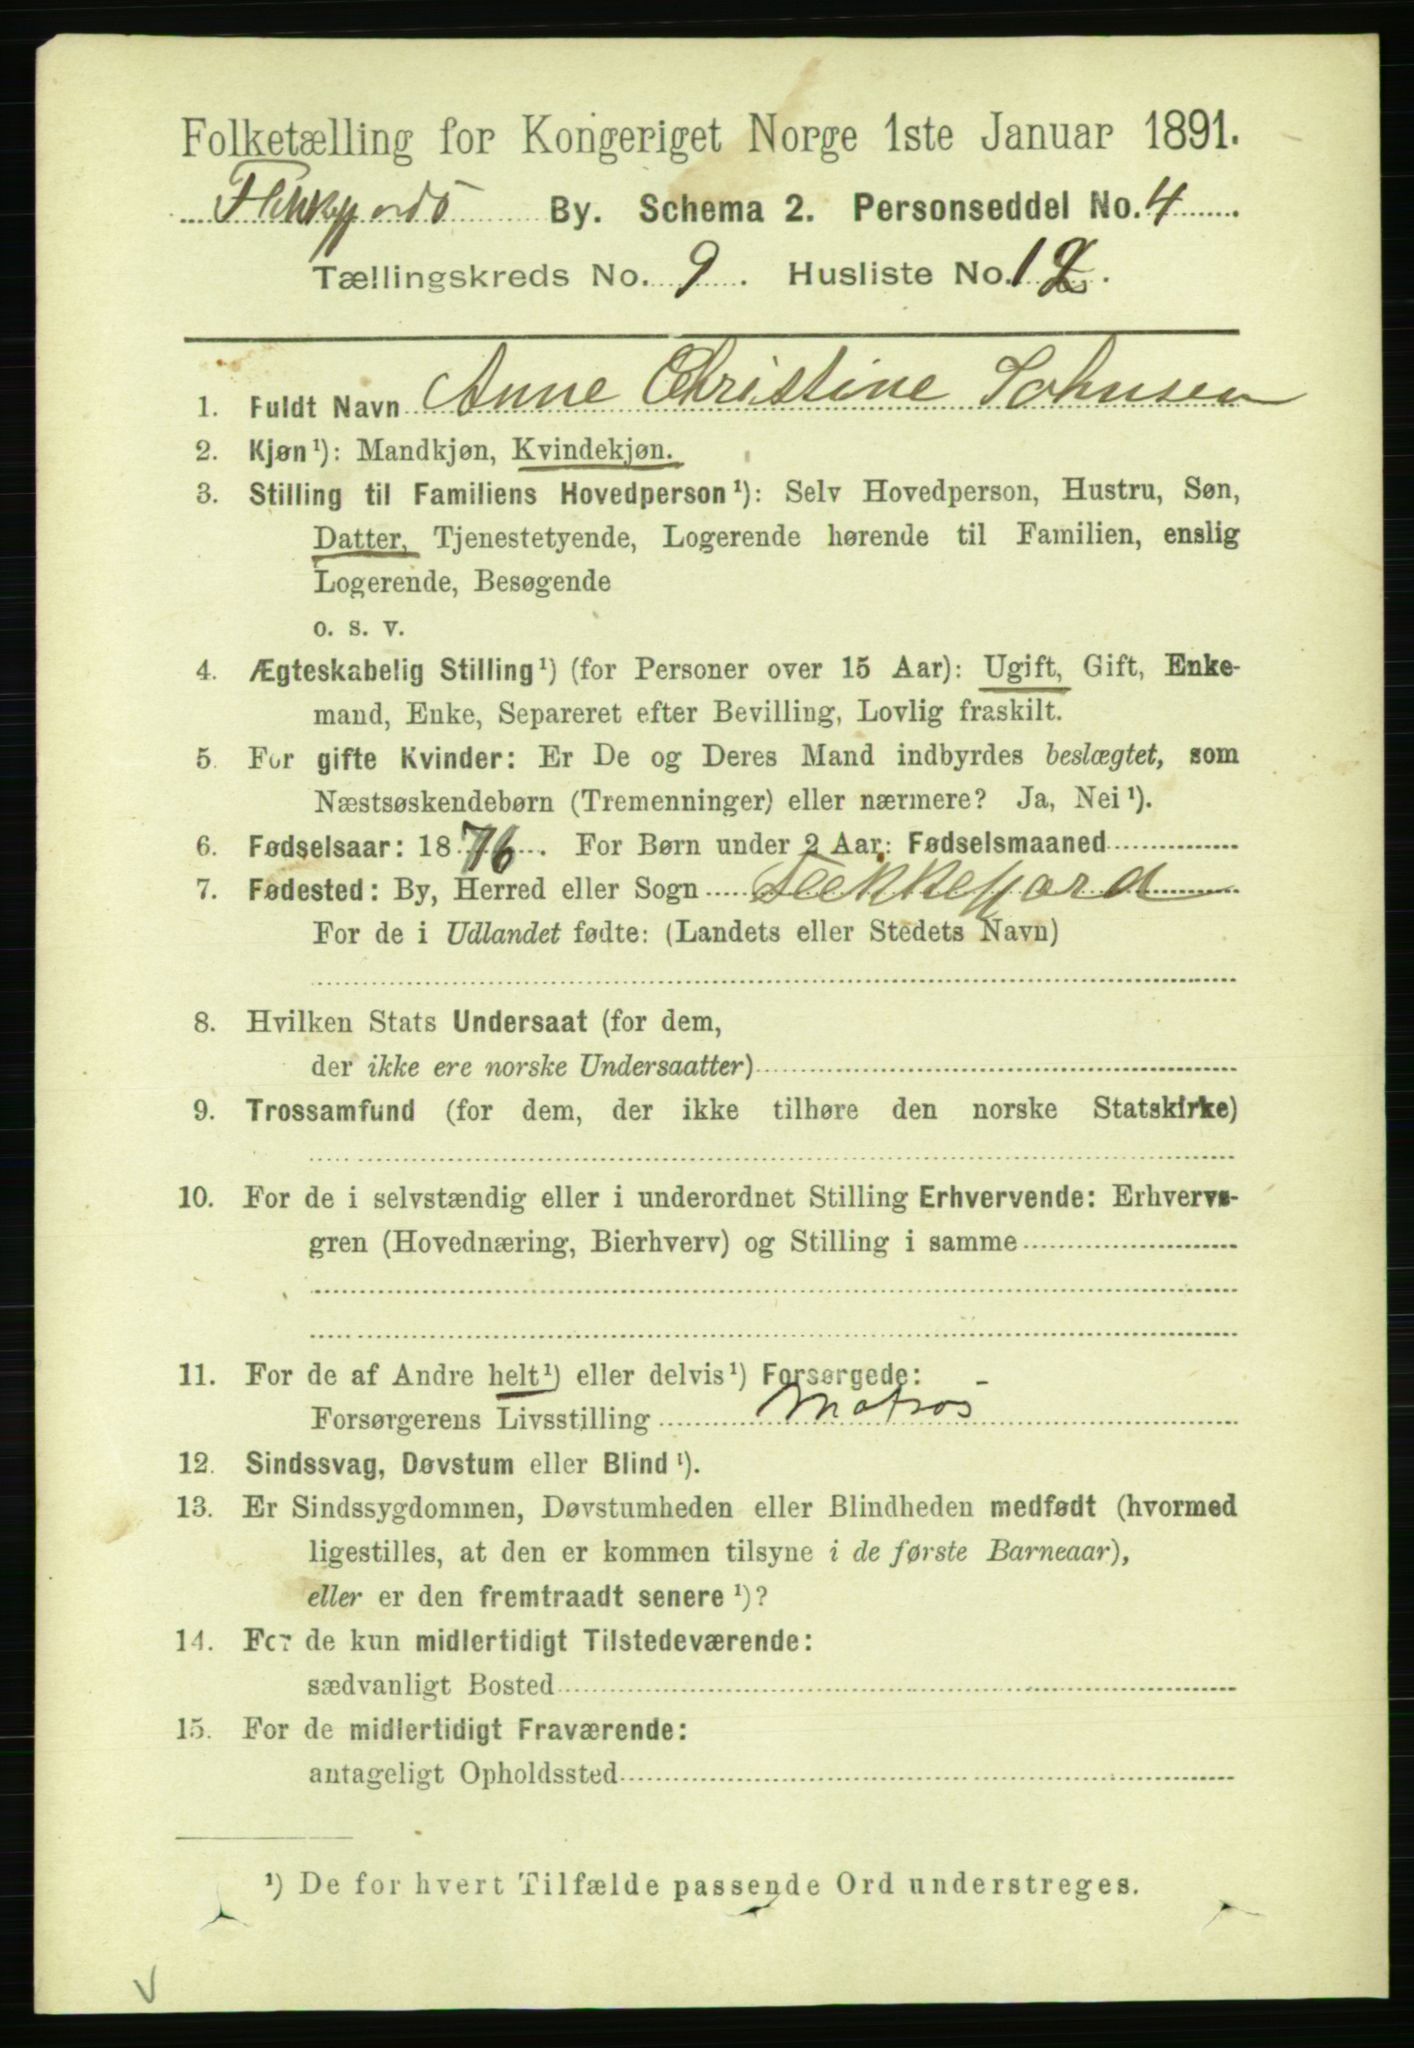 Folketælling for Kongeriget Norge 1ste Januar 1891.
Flekkefjords By. Schema 2. Personseddel No. 4
Tællingskreds No. 9. Husliste No. 12.
1. Fuldt Navn Anne Christine Johnsen
2. Kjøn¹): Mandkjøn, Kvindekjøn.
3. Stilling til Familiens Hovedperson¹): Selv Hovedperson, Hustru, Søn,
Datter, Tjenestetyende, Logerende hørende til Familien, enslig
Logerende, Besøgende
o. s. v.
4. Ægteskabelig Stilling¹) (for Personer over 15 Aar): Ugift, Gift, Enke-
mand, Enke, Separeret efter Bevilling, Lovlig fraskilt.
5. For gifte Kvinder: Er De og Deres Mand indbyrdes beslægtet, som
Næstsøskendebørn (Tremenninger) eller nærmere? Ja, Nei¹).
6. Fødselsaar: 1876. For Børn under 2 Aar: Fødselsmaaned
7. Fødested: By, Herred eller Sogn Flekkefjord
For de i Udlandet fødte: (Landets eller Stedets Navn)
8. Hvilken Stats Undersaat (for dem,
der ikke ere norske Undersaatter)
9. Trossamfund (for dem, der ikke tilhøre den norske Statskirke)
10. For de i selvstændig eller i underordnet Stilling Erhvervende: Erhvervs-
gren (Hovednæring, Bierhverv) og Stilling i samme
11. For de af Andre helt¹) eller delvis¹) Forsørgede:
Forsørgerens Livsstilling Matros
12. Sindssvag, Døvstum eller Blind¹).
13. Er Sindssygdommen, Døvstumheden eller Blindheden medfødt (hvormed
ligestilles, at den er kommen tilsyne i de første Barneaar),
eller er den fremtraadt senere¹)?
14. For de kun midlertidigt Tilstedeværende:
sædvanligt Bosted
15. For de midlertidigt Fraværende:
antageligt Opholdssted
¹) De for hvert Tilfælde passende Ord understreges.